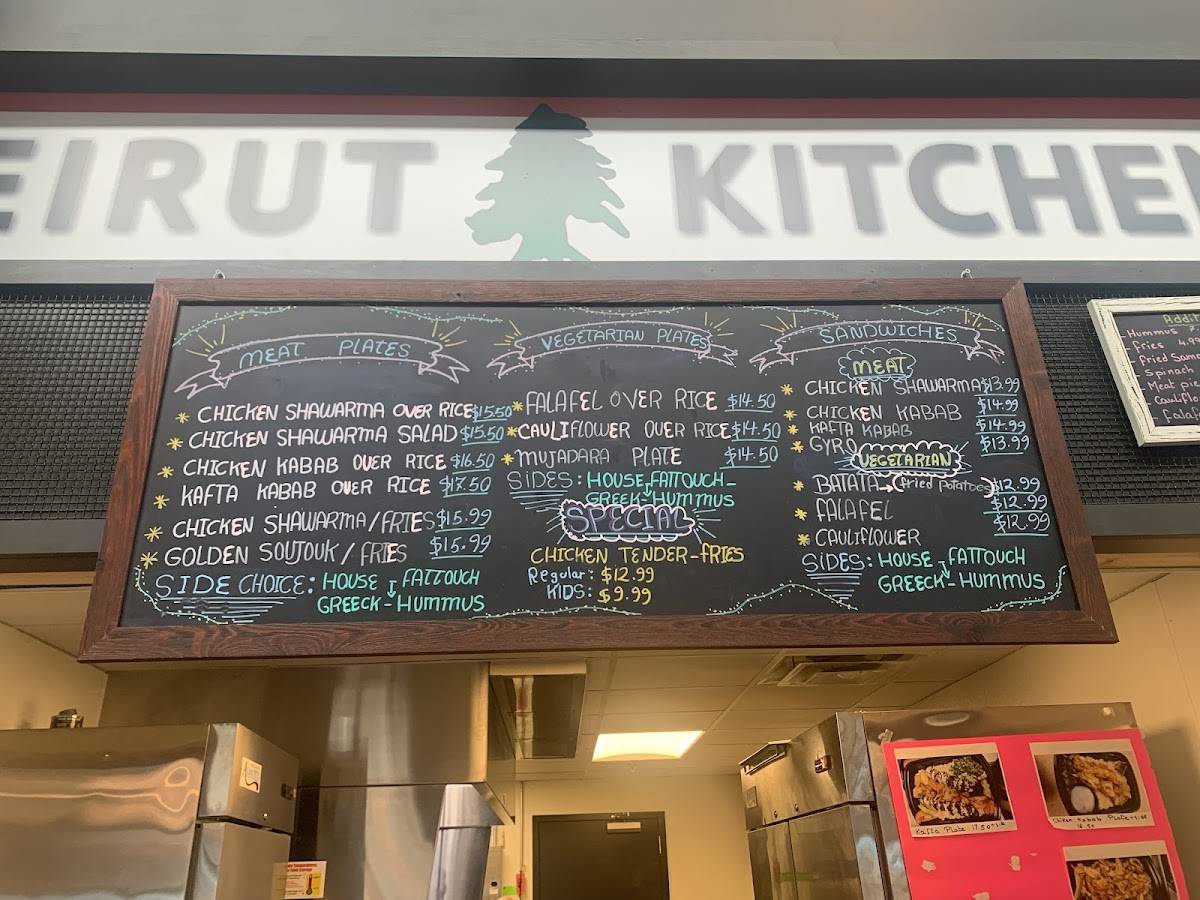 EIRUT KITCHEN
MEAT PLATES
* CHICKEN SHAWARMA OVER RICE $15.50
* CHICKEN SHAWARMA SALAD $15.50
* CHICKEN KABAB OVER RICE $16.50
* KAFTA KABAB OVER RICE $17.50
* CHICKEN SHAWARMA/FRIES $15.99
* GOLDEN SOUJOUK/FRIES $15.99
SIDE CHOICE: HOUSE, FATTOUCH
GREECK-HUMMUS
VEGETARIAN PLATES
* FALAFEL OVER RICE $14.50
* CAULIFLOWER OVER RICE $14.50
* MUJADARA PLATE $14.50
SIDES: HOUSE, FATTOUCH-
GREEK-HUMMUS
SPECIAL
CHICKEN TENDER-FRIES
Regular: $12.99
KIDS: $9.99
SANDWICHES
MEAT
* CHICKEN SHAWARMA $13.99
* CHICKEN KABAB $14.99
* KAFTA KABAB $14.99
* GYRO $13.99
VEGETARIAN
* BATATA→(fried potatoes) $12.99
* FALAFEL $12.99
* CAULIFLOWER $12.99
SIDES: HOUSE, FATTOUCH
GREECK-HUMMUS
Addit
Hummus
Fries 4.99
Fried Sam
Spinach
Meat pi
Cauliflo
Fala
Kafta Plate 17.50
Chiken Kabab Plate
16.50